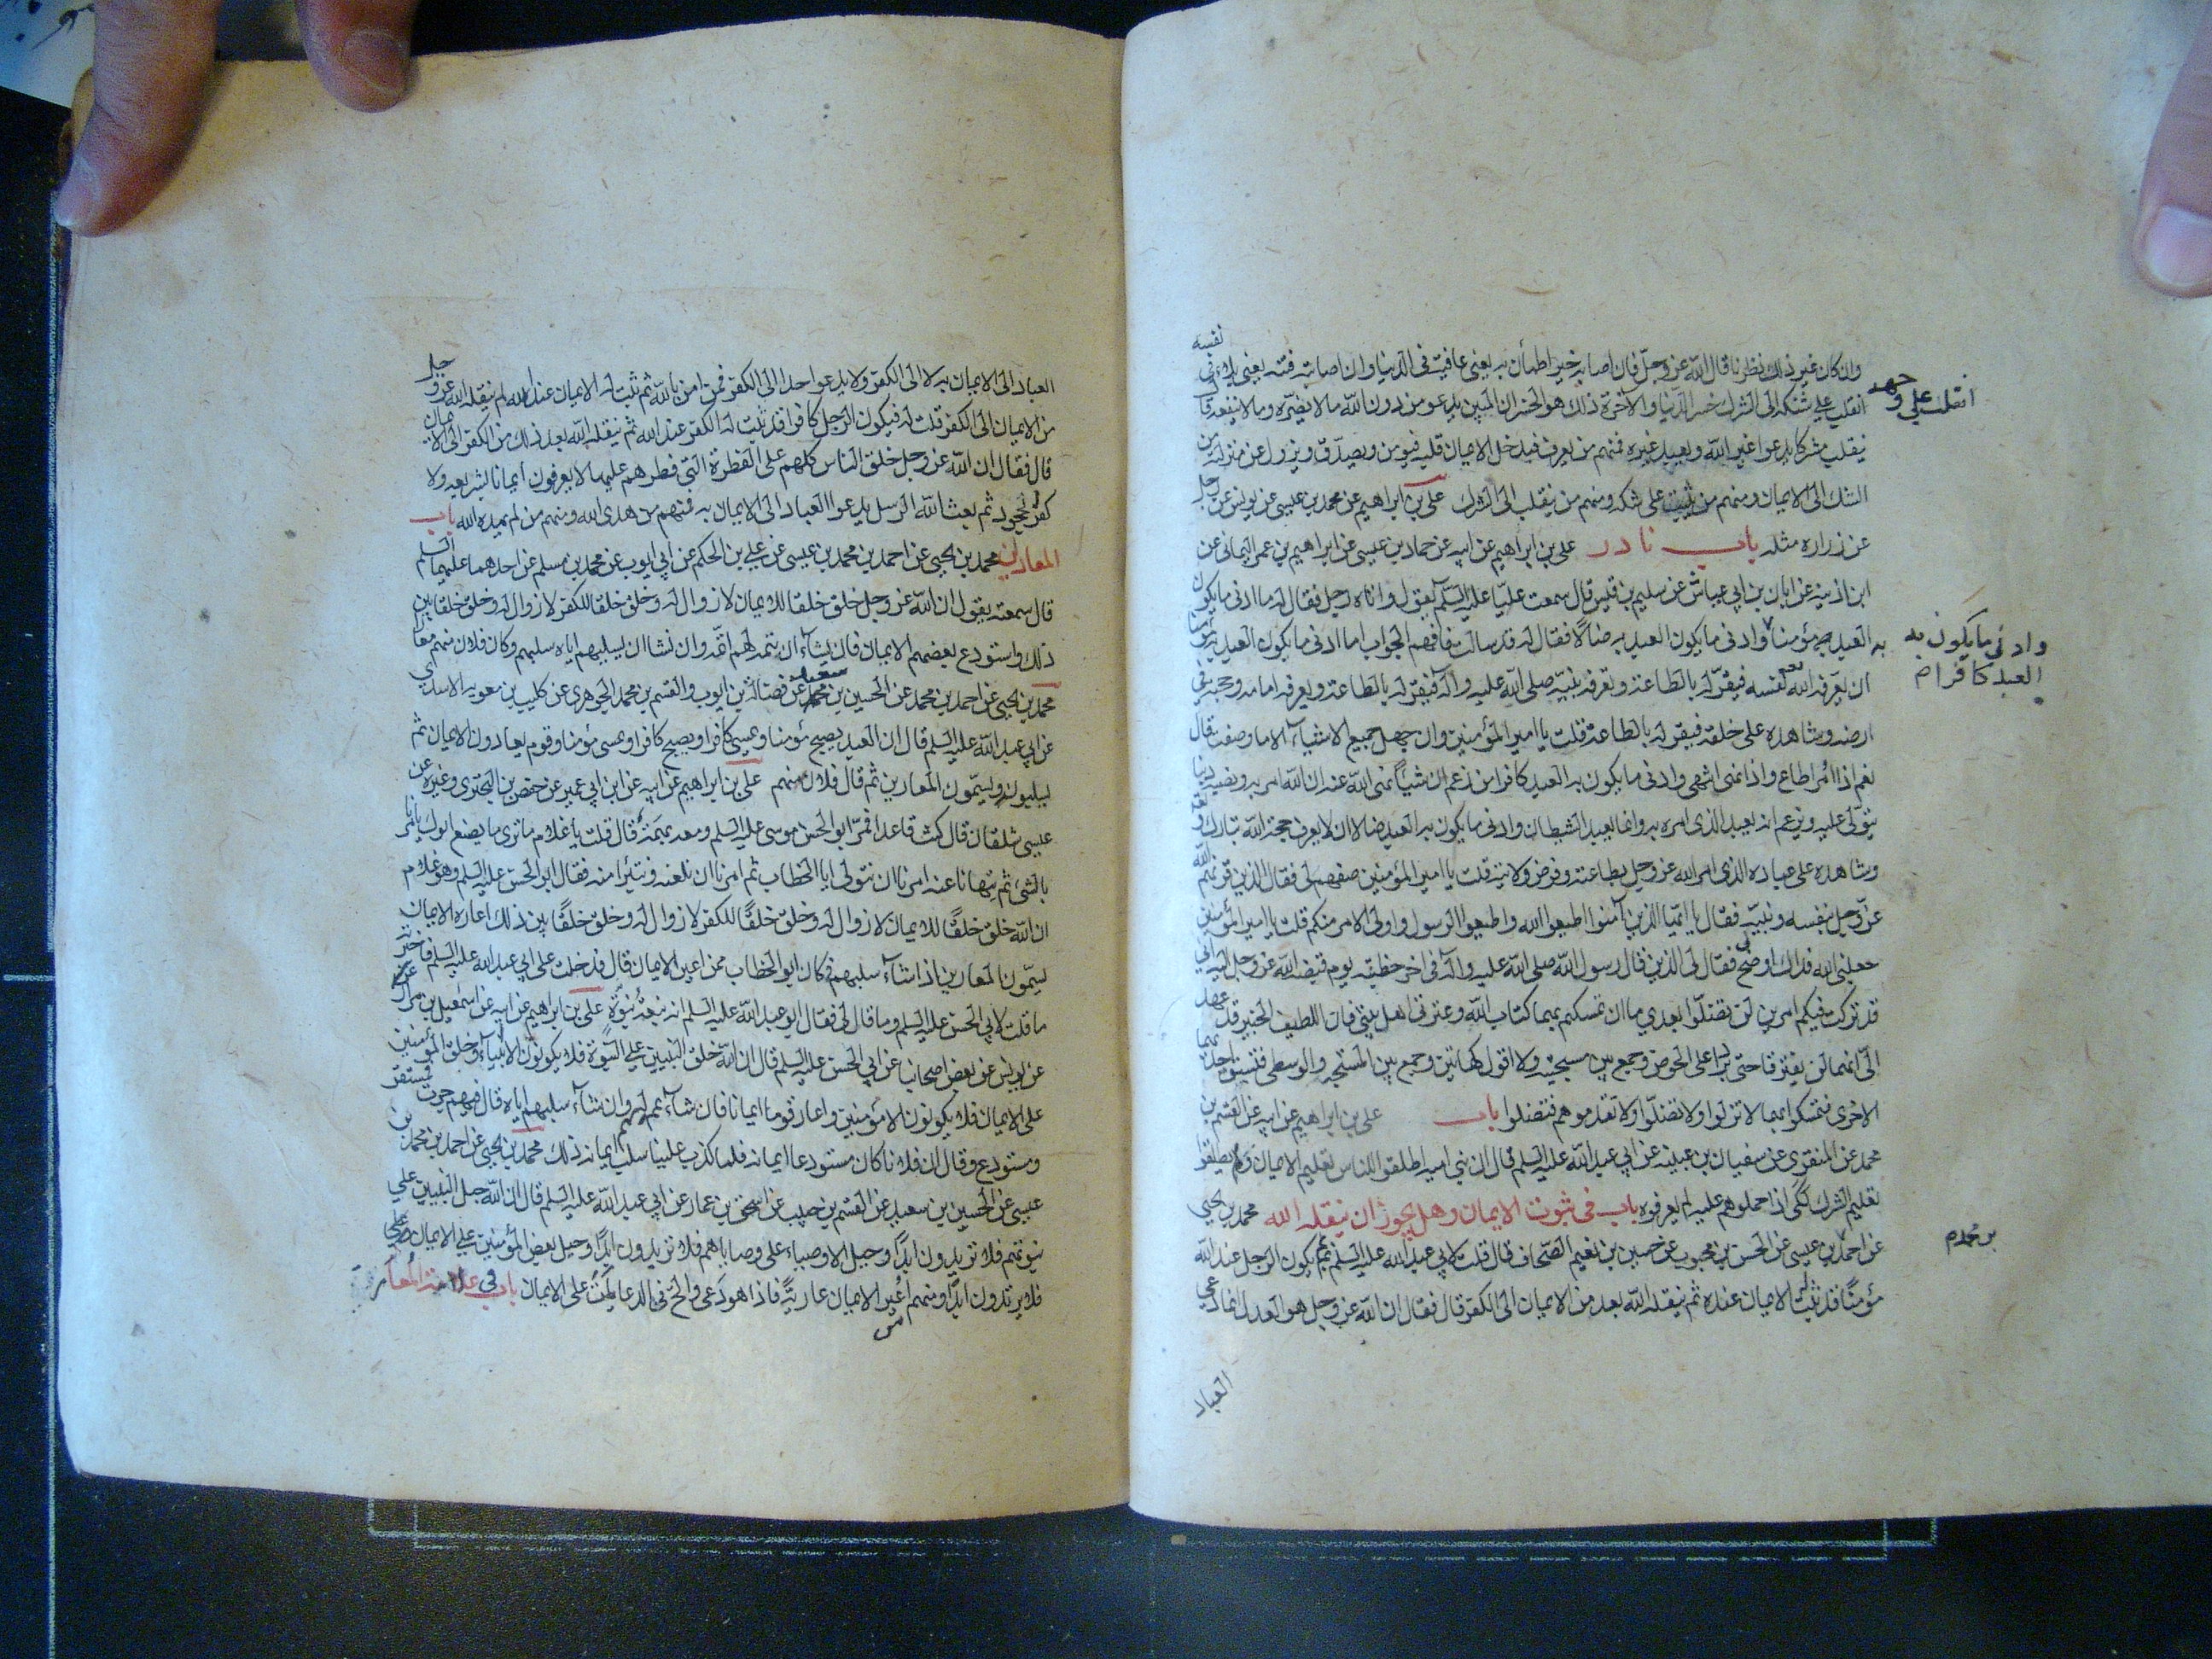 وان كان غير ذلك نظرنا قال الله عز وجل فان اصابه خير اطمأن به يعني عافية في الدنيا وان اصابته فتنة يعني بلاء في نفسه
انقلب على وجهه
انقلب على شكه الى الشرك خسر الدنيا والآخرة ذلك هو الخسران المبين يدعو من دون الله ما لا يضره وما لا ينفعه قال
ينقلب مشركا يدعوا غير الله ويعبد غيره فمنهم من يعرف فيدخل الايمان قلبه فيؤمن ويصدق ويزول عن منزلته من
الشك الى الايمان ومنهم من يثبت على شكه ومنهم من ينقلب الى الشرك علي بن ابراهيم عن محمد بن عيسى عن يونس عن رجل
عن زراره مثله باب نادر علي بن ابراهيم عن ابيه عن حماد بن عيسى عن ابراهيم بن عمر اليماني عن
ابن اذينه عن ابان بن ابي عياش عن سليم بن قيس قال سمعت عليا عليه السلم يقول واتاه رجل فقال له ما ادنى ما يكون
به العبد مؤمنا وادنى ما يكون العبد به ضالا فقال له قد سالت فافهم الجواب اما ادنى ما يكون العبد به مؤمنا
وادنى ما يكون به
العبد كافرا
ان يعرفه الله نفسه فيقر له بالطاعة ويعرفه نبيه صلى الله عليه وآله فيقر له بالطاعة ويعرفه امامه وحجته في
ارضه وشاهده على خلقه فيقر له بالطاعة قلت يا امير المؤمنين وان جهل جميع الاشياء الا ما وصفت قال
نعم اذا امر اطاع واذا نهى انتهى وادنى ما يكون به العبد كافرا من زعم ان شيئا نهى الله عنه ان الله امر به ونصبه دينا
يتولى عليه ويزعم انه يعبد الذي امره به وانما يعبد الشيطان وادنى ما يكون به العبد ضالا ان لا يعرف حجة الله تبارك وتعالى
وشاهده على عباده الذي امر الله عز وجل بطاعته وفرض ولايته قلت يا امير المؤمنين صفهم لي فقال الذين قرنهم الله
عز وجل بنفسه ونبيه فقال يا ايها الذين آمنوا اطيعوا الله واطيعوا الرسول واولى الامر منكم قلت يا امير المؤمنين
جعلني الله فداك اوضح لي فقال لي الذين قال رسول الله صلى الله عليه وآله في اخر خطبته يوم قبضه الله عز وجل اليه اني
قد تركت فيكم امرين لن تضلوا بعدي ما ان تمسكتم بهما كتاب الله وعترتي اهل بيتي فان اللطيف الخبير قد عهد
الي انهما لن يفترقا حتى يردا على الحوض وجمع بين مسبحتيه ولا اقول كهاتين وجمع بين المسبحه والوسطى فتسبق احدهما
الاخرى فتمسكوا بهما لا تزلوا ولا تضلوا ولا تقدموهم فتضلوا باب علي بن ابراهيم عن ابيه عن القسم بن
محمد عن المنقري عن سفيان بن عيينه عن ابي عبد الله عليه السلم قال ان بني اميه اطلقوا للناس تعليم الايمان ولم يطلقوا
تعليم الشرك لكي اذا حملوهم عليه لم يعرفوه باب في ثبوت الايمان وهل يجوز ان ينقله الله محمد بن يحيى
عن احمد بن عيسى عن الحسن بن محبوب عن حسين بن نعيم الصحاف قال قلت لابي عبد الله عليه السلم لم يكون الرجل عند الله
بن محمد
مؤمنا قد ثبت له الايمان عنده ثم ينقله الله بعد من الايمان الى الكفر قال فقال ان الله عز وجل هو العدل انما دعى
العباد
العباد الى الايمان به لا الى الكفر ولا يدعو احدا الى الكفر فمن امن بالله ثم ثبت له الايمان عند الله لم ينقله الله عز وجل
من الايمان الى الكفر قلت له فيكون الرجل كافرا قد ثبت له الكفر عند الله ثم ينقله الله بعد ذلك من الكفر الى الايمان
قال فقال ان الله عز وجل خلق الناس كلهم على الفطرة التي فطرهم عليها لا يعرفون ايمانا بشريعه ولا
كفرا بجحود ثم بعث الله الرسل يدعوا العباد الى الايمان به فمنهم من هدى الله ومنهم من لم يهده الله باب
المعارين محمد بن يحيى عن احمد بن محمد بن عيسى عن علي بن الحكم عن ابي ايوب عن محمد بن مسلم عن احدهما عليهما السلم
قال سمعته يقول ان الله عز وجل خلق خلقا للايمان لا زوال له وخلق خلقا للكفر لا زوال له وخلق خلقا بين
ذلك واستودع بعضهم الايمان فان يشاء ان يتمه لهم اتمه وان نشا ان يسلبهم اياه سلبهم وكان فلان منهم معارا
محمد بن يحيى عن احمد بن محمد عن الحسين بن سعيد عن فضالة بن ايوب والقسم بن محمد الجوهري عن كليب بن معويه الاسدي
عن ابي عبد الله عليه السلم قال ان العبد يصبح مؤمنا ويمسي كافرا ويصبح كافرا ويمسى مؤمنا وقوم يعارون الايمان ثم
يسلبونه ويسمون المعارين ثم قال فلان منهم علي بن ابراهيم عن ابيه عن ابن ابي عمير عن حفص بن البختري وغيره عن
عيسى شلقان قال كنت قاعدا فمر ابو الحسن موسى عليه السلم ومعه بهمة قال قلت يا غلام ما ترى ما يصنع ابوك يامرنا
بالشيء ثم ينهانا عنه امرنا ان نتولى ابا الخطاب ثم امرنا ان نلعنه ونتبرأ منه فقال ابو الحسن عليه السلم وهو غلام
ان الله خلق خلقا للايمان لا زوال له وخلق خلقا للكفر لا زوال له وخلق خلقا بين ذلك اعاره الايمان
يسمون المعارين اذا شاء سلبهم وكان ابو الخطاب ممن اعير الايمان قال فدخلت على ابي عبد الله عليه السلم فاخبرته
ما قلت لابي الحسن عليه السلم وما قال لي فقال ابو عبد الله عليه السلم انه نبعة نبوة علي بن ابراهيم عن ابيه عن اسمعيل بن مرار
عن يونس عن بعض اصحابنا عن ابي الحسن عليه السلم قال ان الله خلق النبيين على النبوة فلا يكونون الا انبياء وخلق المؤمنين
على الايمان فلا يكونون الا مؤمنين واعار قوما ايمانا فان شاء تممه لهم وان شاء سلبهم اياه قال فيهم جرت فمستقر
ومستودع وقال ان فلانا كان مستودعا ايمانه فلما كذب علينا سلب ايمانه ذلك محمد بن يحيى عن احمد بن محمد بن
عيسى عن الحسين بن سعيد عن القسم بن حبيب عن اسحق بن عمار عن ابي عبد الله عليه السلم قال ان الله جبل النبيين على
نبوتهم فلا يرتدون ابدا وجبل الاوصياء على وصاياهم فلا يرتدون ابدا وجبل بعض المؤمنين على الايمان
فلا يرتدون ابدا ومنهم من اعير الايمان عارية فاذا هو دعى والح في الدعا مات على الايمان باب في علامة المعار